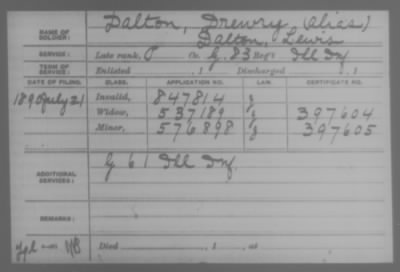 NAME OF SOLDIER: Dalton, Drewry, (alias)
Dalton, Lewis
SERVICE: Late rank, P Co. G, 83 Reg't Ill Inf
TERM OF SERVICE: Enlisted , 1 Discharged , 1
DATE OF FILING. CLASS. APPLICATION NO. LAW. CERTIFICATE NO.
1890 July 21 Invalid, 847814 J
Widow, 537189 J 397604
Minor, 576898 J 397605
ADDITIONAL SERVICES: G 61 Ill Inf.
REMARKS:
Died , 1 , at